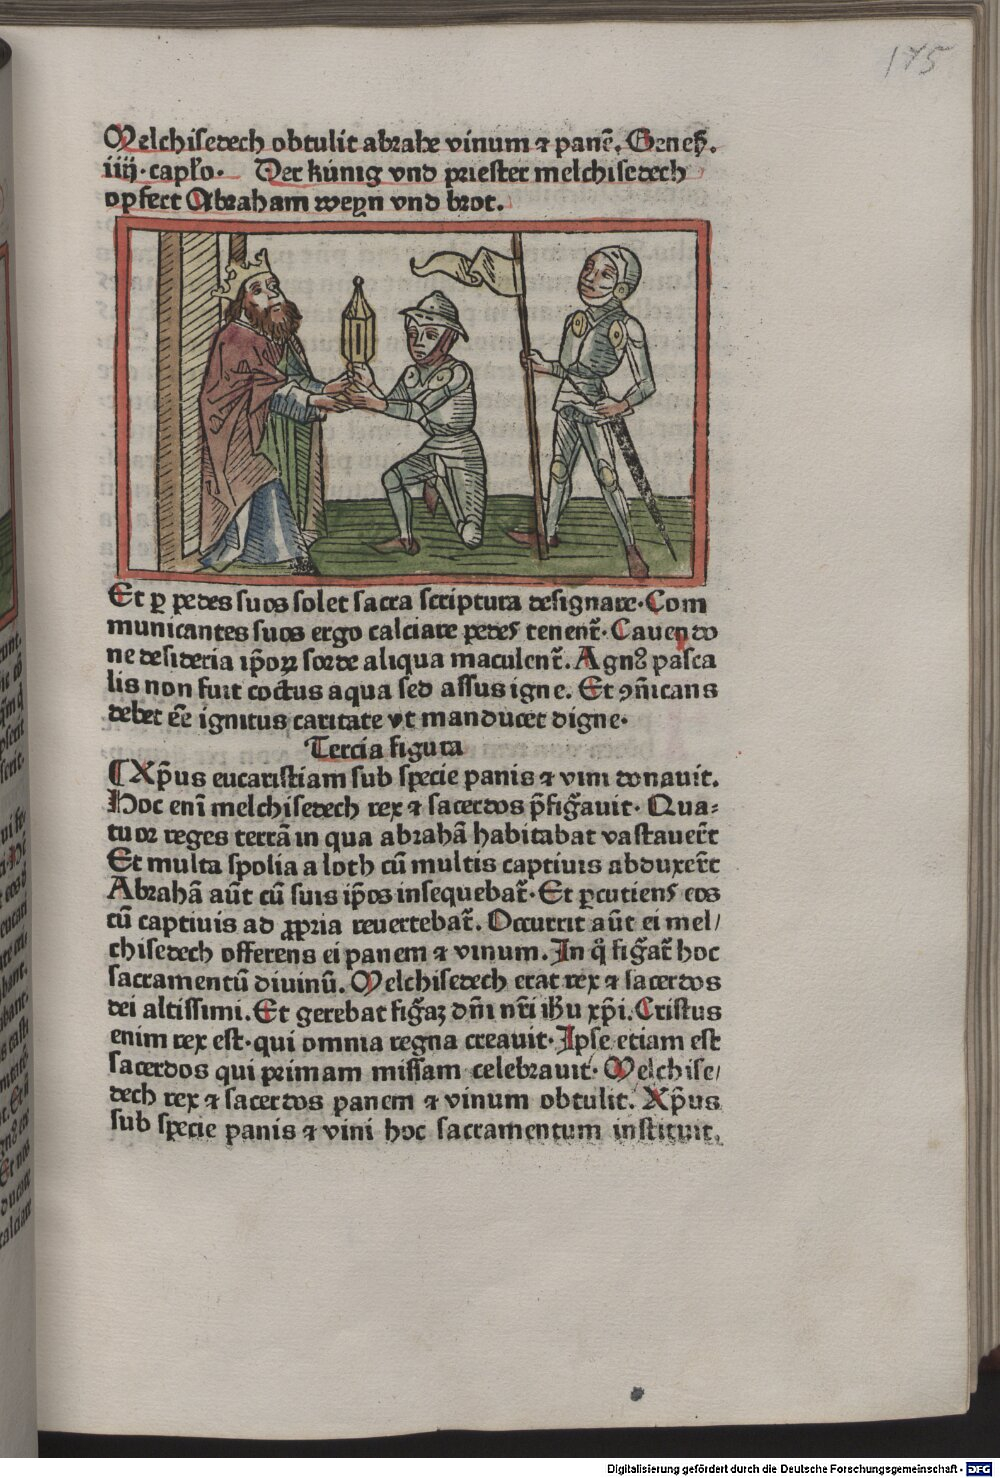 175
Melchisedech obtulit abrahe vinum ⁊ panē. Geneß.
iiij. capl̓o. Der kúnig vnd priester melchisedech
opfert Abraham weyn vnd brot.
Et ꝑ pedes suos solet sacra scriptura designare. Com
municantes suos ergo calciare pedes tenent̄. Cauendo
ne desideria ip̄oꝝ sorde aliqua maculent̄. Agnꝰ pasca
lis non fuit coctus aqua sed assus igne. Et ꝯm̄icans
debet eē ignitus caritate vt manducet digne.
Tercia figura
¶ Xp̄us eucaristiam sub specie panis ⁊ vini donauit.
Hoc enī melchisedech rex ⁊ sacerdos p̄fig̃auit. Qua⸗
tuor reges terrā in qua abrahā habitabat vastauer̄t
Et multa spolia a loth cū multis captiuis abduxer̄t
Abrahā aūt cū suis ip̄os insequebat̄. Et ꝑcutiens eos
cū captiuis ad ꝓpria reuertebat̄. Occurrit aūt ei mel/
chisedech offerens ei panem ⁊ vinum. In q̄ fig̃at̄ hoc
sacramentū diuinū. Melchisedech erat rex ⁊ sacerdos
dei altissimi. Et gerebat fig̃aꝫ dn̄i nr̄i ih̄u xp̄i. Cristus
enim rex est. qui omnia regna creauit. Ipse etiam est
sacerdos qui primam missam celebrauit. Melchise/
dech rex ⁊ sacerdos panem ⁊ vinum obtulit. Xp̄us
sub specie panis ⁊ vini hoc sacramentum instituit.
Digitalisierung gefördert durch die Deutsche Forschungsgemeinschaft - DFG